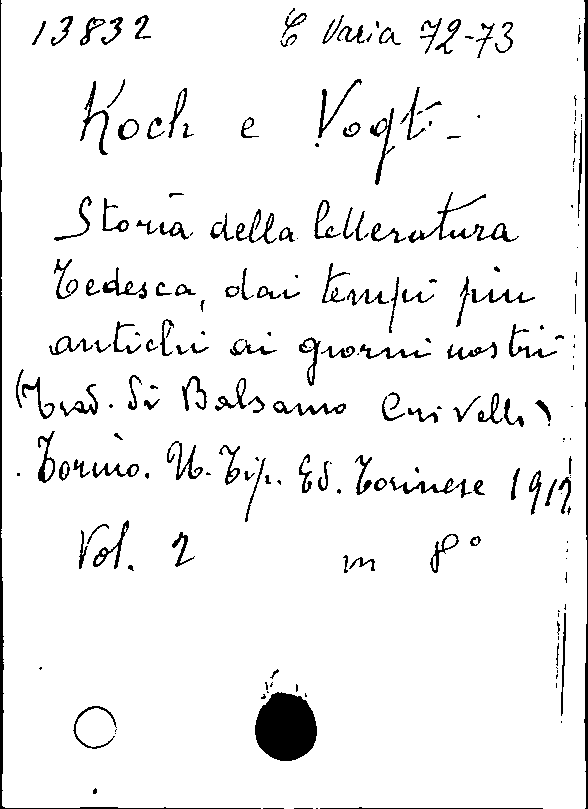 13832 C Varia 72-73
Koch e Vogt -
Storia della letteratura
Tedesca, dai tempi più
antichi ai giorni nostri
(Trad. di Balsamo Crivelli)
Torino. U. Tip. Ed. Torinese 1912
Vol. 2 in 8°